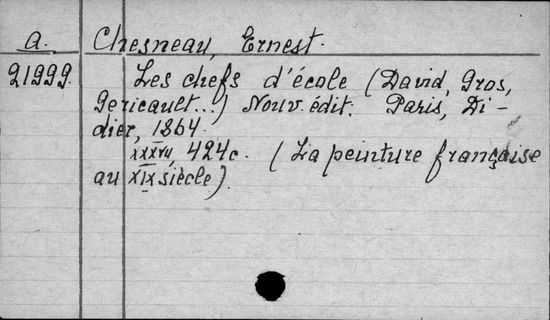 a. Chesneau, Ernest.
21999. Les chefs d'école (David, Gros,
Gericault...) Nouv. édit. Paris, Di-
dier, 1864.
XXXVII, 424c. (La peinture française
au XIX siècle).